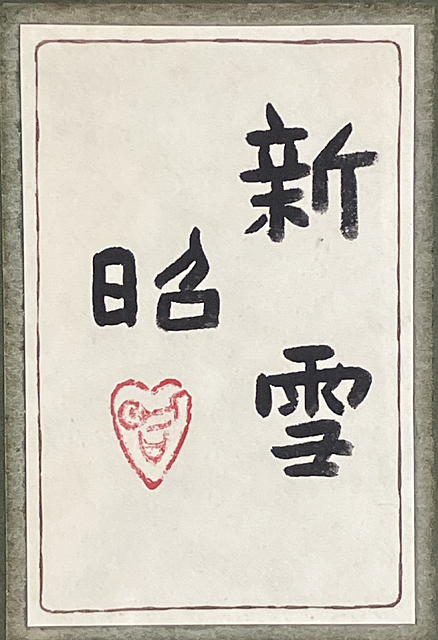 新雪
昭